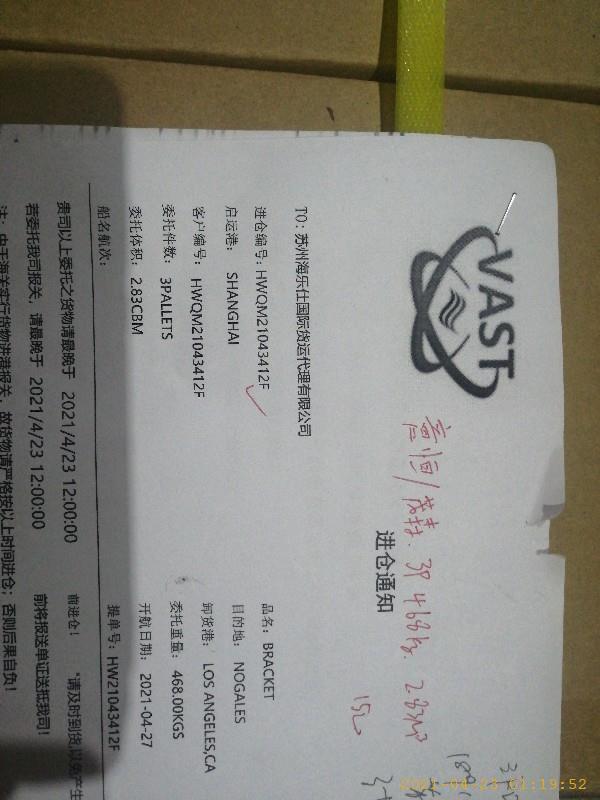 VAST
3P 468kg. 2.83m³
进仓通知
TO：苏州海乐仕国际货运代理有限公司
进仓编号：HWQM21043412F
品名：BRACKET
启运港： SHANGHAI
目的地： NOGALES
客户编号： HWQM21043412F
卸货港： LOS ANGELES,CA
委托件数： 3PALLETS
委托重量： 468.00KGS
委托体积： 2.83CBM
开航日期： 2021-04-27
船名航次：
提单号：HW21043412F
贵司以上委托之货物请最晚于 2021/4/23 12:00:00 前进仓！ *请及时到货,以免产生
若委托我司报关，请最晚于 2021/4/23 12:00:00 前将报送单证送抵我司!
注：由于海关实行货物进港报关，故货物请严格按以上时间进仓；否则后果自负!
2021-04-23 01:19:52